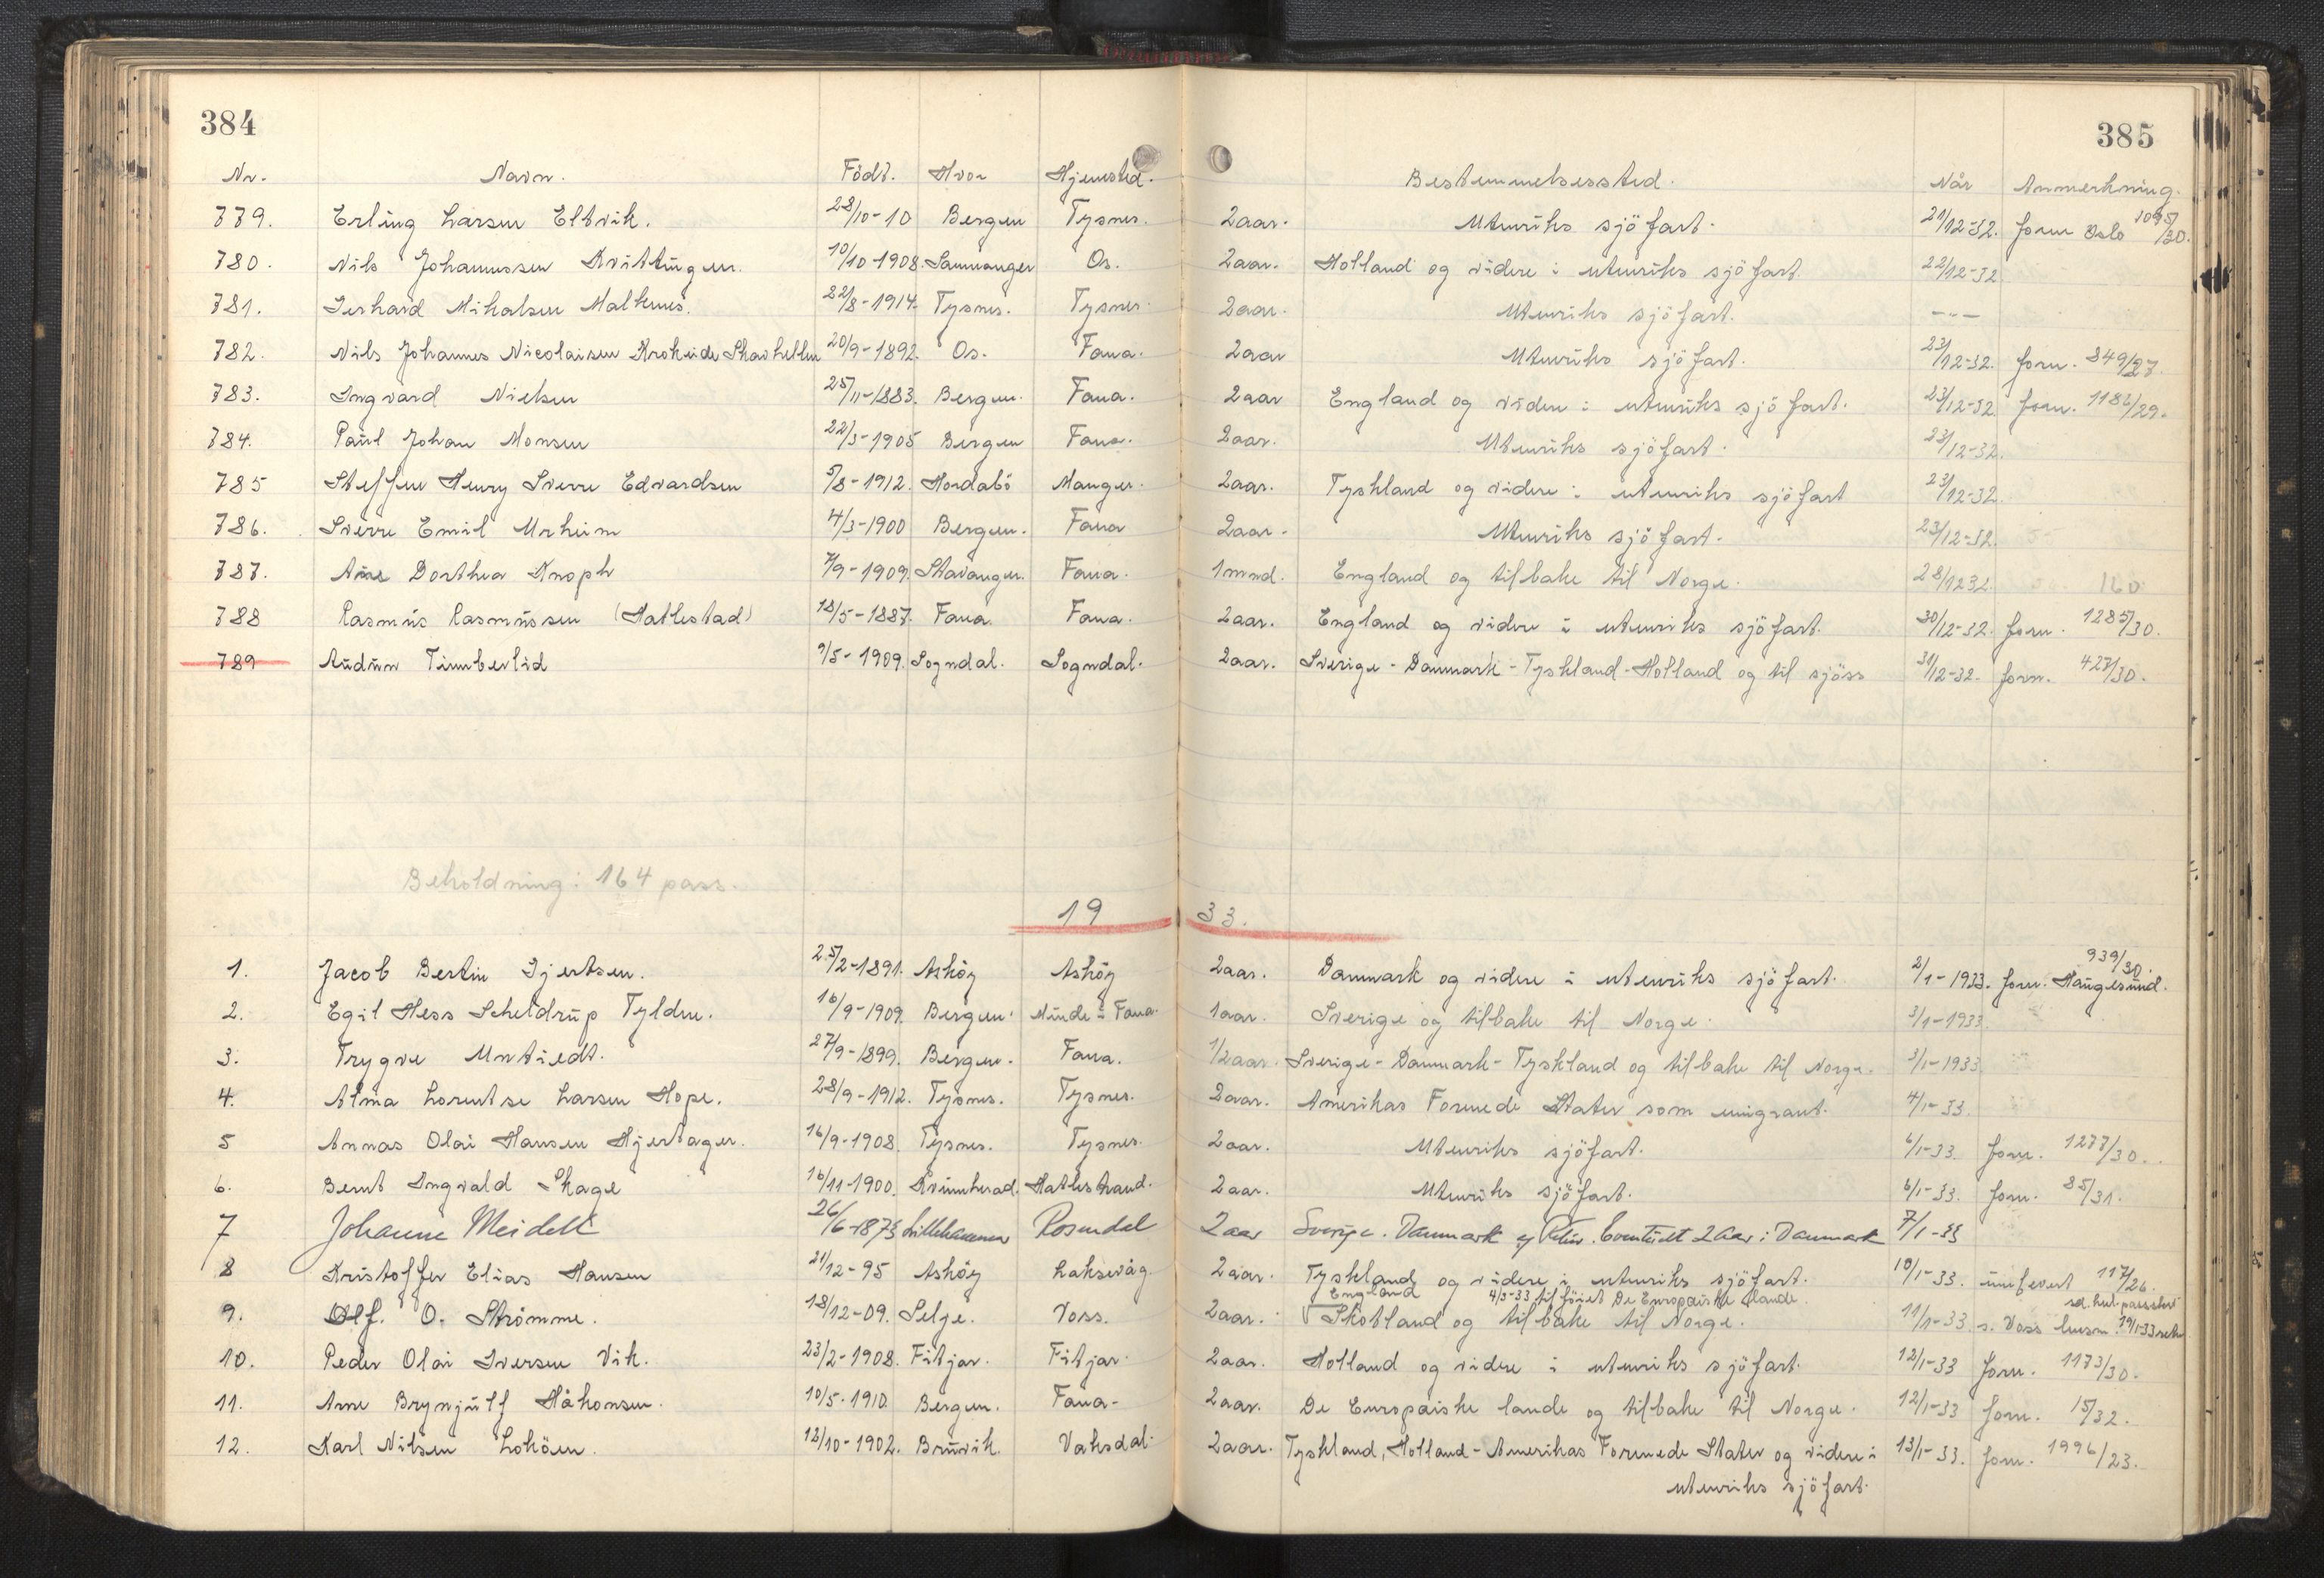 384
385
Nr. Navn. Födt. Hvor Hjemsted. Bestemmelsessted. Når Anmerkning.
779. Erling Larsen Eltvik. 28/10-10 Bergen Tysnes. 2aar. Utenriks sjöfart. 21/12-32. forn Oslo 1095/30.
780. Nils Johannessen Kvittingen. 10/10-1908. Samnanger Os. 2aar. Holland og videre i utenriks sjöfart. 22/12-32
781. Gerhard Mikalsen Malkenes. 22/8-1914. Tysnes. Tysnes. 2aar. Utenriks sjöfart. -"-
782. Nils Johannes Nicolaisen Krokeide Skarhellen 20/9-1892. Os. Fana. 2aar Utenriks sjöfart. 23/12-32. forn. 849/27.
783. Ingvard Nielsen 25/11-1883. Bergen. Fana. 2aar England og videre i utenriks sjöfart. 23/12-32 forn. 1182/29.
784. Paul Johan Monsen 22/3-1905 Bergen Fana. 2aar. Utenriks sjöfart. 23/12-32.
785 Steffen Henry Sverre Edvardsen 5/8-1912. Hordabö Manger. 2aar. Tyskland og videre i utenriks sjöfart 23/12-32.
786. Sverre Emil Urheim 4/3-1900 Bergen. Fana 2aar. Utenriks sjöfart. 23/12-32.
787. Ane Dorthea Knoph 7/9-1909. Stavanger. Fana. 1mnd. England og tilbake til Norge. 28/1232. 160
788 Rasmus Rasmussen (Hatlestad) 18/5-1887. Fana. Fana. 2aar. England og videre i utenriks sjöfart. 30/12-32. forn. 1285/30.
789 Audun Timberlid 9/5-1909. Sogndal. Sogndal. 2aar. Sverige-Danmark-Tyskland-Holland og til sjöss 31/12-32. forn. 427/30.
Beholdning: 164 pass.
19 33.
1. Jacob Bertin Gjertsen. 25/2-1891. Asköy Asköy 2aar. Danmark og videre i utenriks sjöfart. 2/1-1933. forn. Haugesund. 939/30.
2. Egil Hess Scheldrup Tyldum. 16/9-1909. Bergen. Minde i Fana. 1aar. Sverige og tilbake til Norge. 3/1-1933.
3. Trygve Untiedt. 27/9-1899. Bergen. Fana. 1/2aar. Sverige-Danmark-Tyskland og tilbake til Norge. 3/1-1933
4. Alma Lorentse Larsen Hope. 28/9-1912. Tysnes. Tysnes. 2aar. Amerikas Forenede Stater som emigrant. 4/1-33.
5 Annas Olai Hansen Hjertager. 16/9-1908. Tysnes. Tysnes. 2aar. Utenriks sjöfart. 6/1-33. forn. 1277/30.
6. Bernt Ingvald Skage 16/11-1900. Kvinnherad. Hatlestrand. 2aar. Utenriks sjöfart. 6/1-33. forn. 85/31.
7 Johanne Meidell 26/6-1873 Lillehammer Rosendal 2aar Sverige. Danmark og retur. Eventuelt 2 aar i Danmark 7/1-33
8 Kristoffer Elias Hansen 21/12-95 Asköy Laksevåg. 2aar. Tyskland og videre i utenriks sjöfart. 10/1-33. 117/26.
England 4/3-33 tilföiet De Europæiske lande.
9. Olf. O. Strömme. 18/12-09. Selje. Voss. 2aar. Skotland og tilbake til Norge. 11/1-33. s. Voss lensm. 19/1-33
10. Peder Olai Iversen Vik. 23/2-1908. Fitjar. Fitjar. 2aar. Holland og videre i utenriks sjöfart. 12/1-33 forn. 1173/30.
11. Arne Brynjulf Håkonsen. 10/5-1910 Bergen. Fana. 2aar. De Europæiske lande og tilbake til Norge. 12/1-33 forn. 15/32.
12. Karl Nilsen Lohöen. 12/10-1902. Bruvik. Vaksdal. 2aar. Tyskland, Holland-Amerikas Forenede Stater og videre i 13/1-33. forn. 1996/23.
utenriks sjöfart.